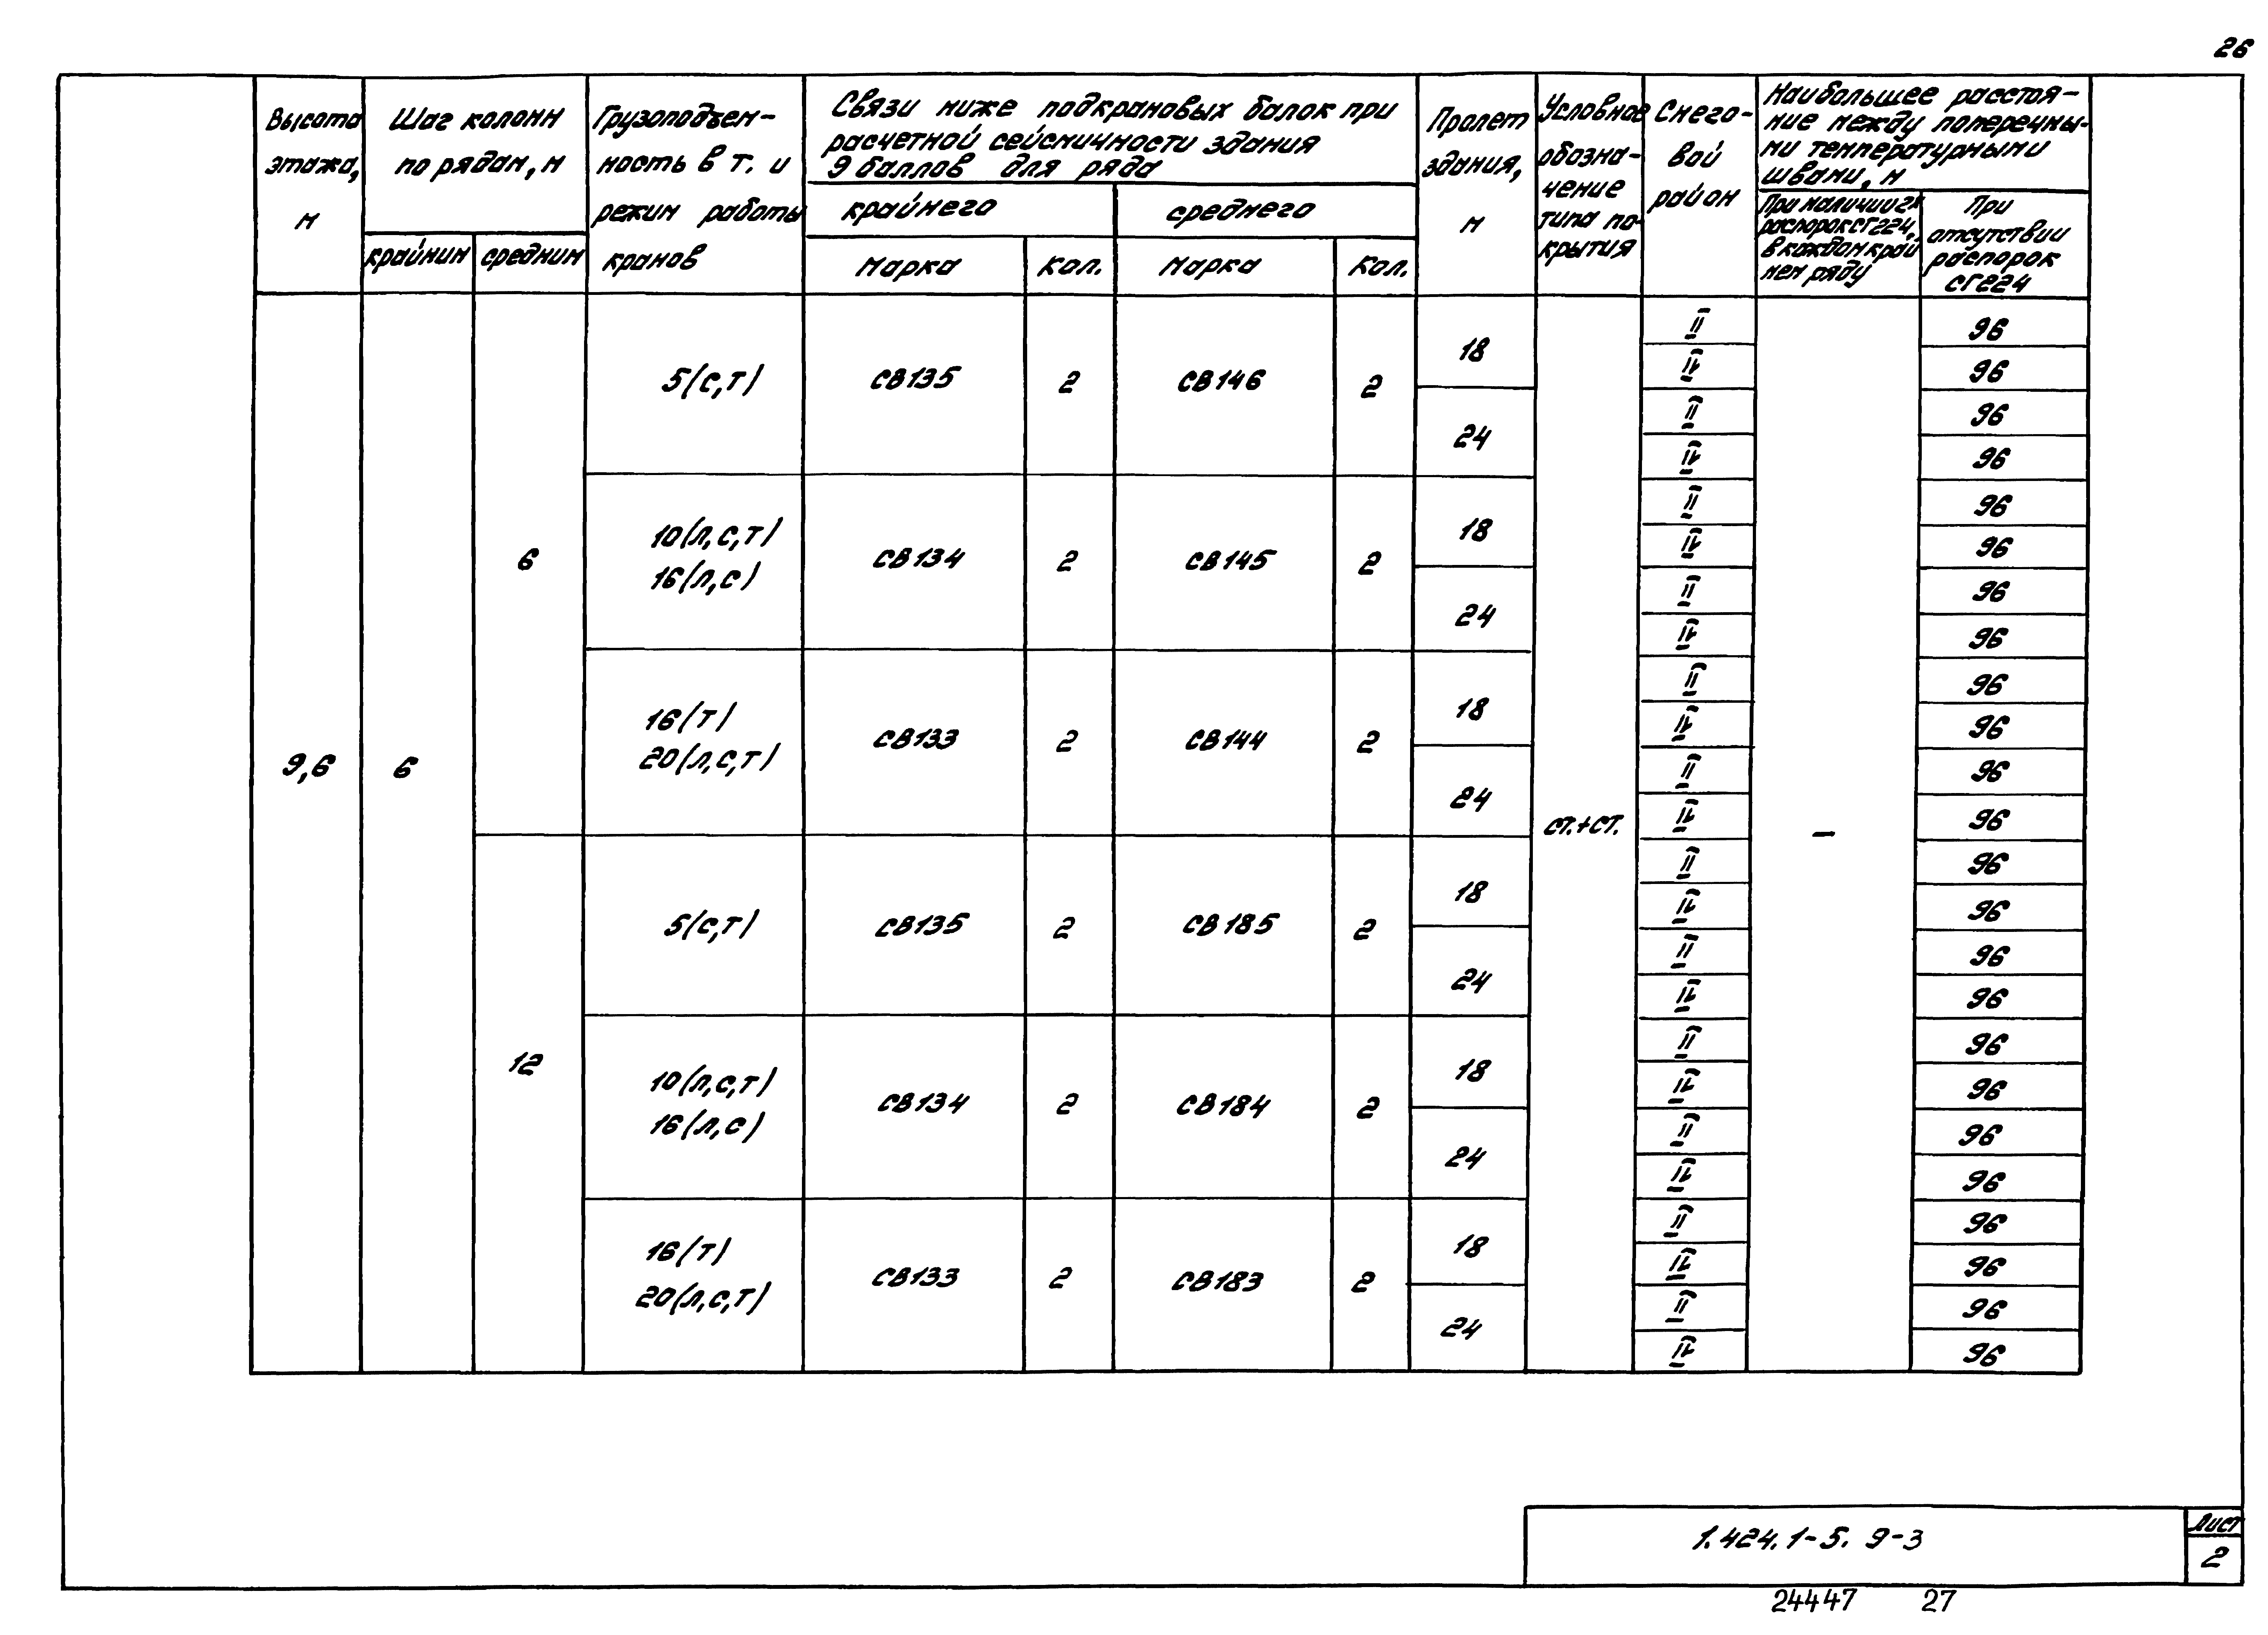 26
Высота
этажа,
м
Шаг колонн
по рядам, м
крайним
средним
Грузоподъем-
ность в т. и
режим работы
кранов
Связи ниже подкрановых балок при
расчетной сейсмичности здания
9 баллов для ряда
крайнего
среднего
Марка
Кол.
Марка
Кол.
Пролет
здания,
м
Условное
обозна-
чение
типа по-
крытия
Снего-
вой
район
Наибольшее расстоя-
ние между поперечны-
ми температурными
швами, м
При наличии 2х
распорок СГ224,
в каждом край
нем ряду
При
отсутствии
распорок
СГ224
9,6
6
6
5(с,т)
СВ135
2
СВ146
2
18
II
96
IV
96
24
II
96
IV
96
10(л,с,т)
16(л,с)
СВ134
2
СВ145
2
18
II
96
IV
96
24
II
96
IV
96
16(т)
20(л,с,т)
СВ133
2
СВ144
2
18
II
96
IV
96
24
II
96
IV
96
ст.+ст.
–
12
5(с,т)
СВ135
2
СВ185
2
18
II
96
IV
96
24
II
96
IV
96
10(л,с,т)
16(л,с)
СВ134
2
СВ184
2
18
II
96
IV
96
24
II
96
IV
96
16(т)
20(л,с,т)
СВ133
2
СВ183
2
18
II
96
IV
96
24
II
96
IV
96
1.424.1-5. 9-3
Лист
2
24447 27